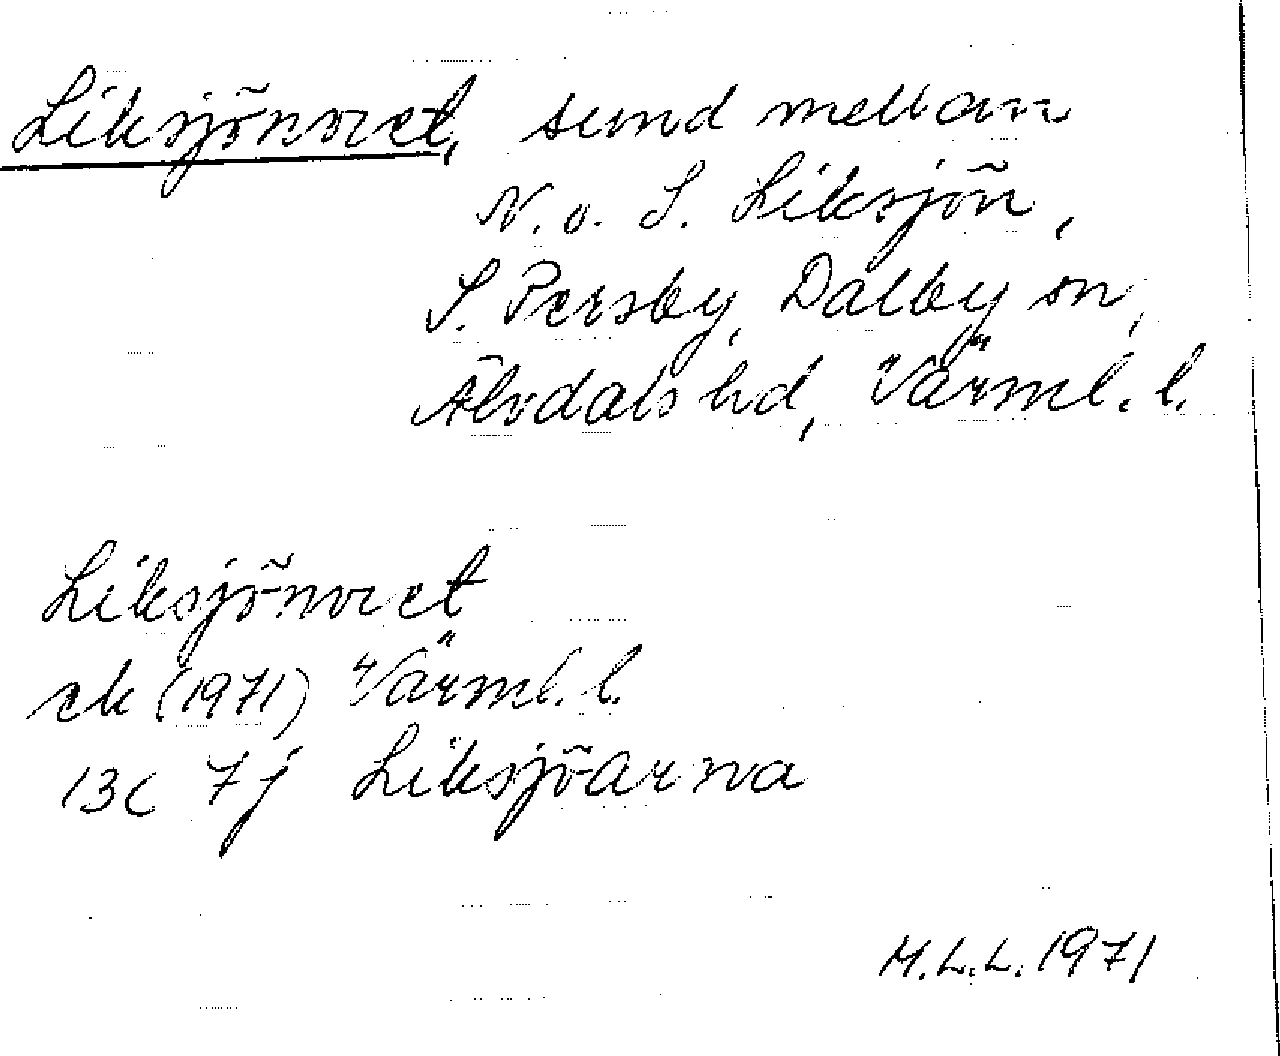 Liksjönoret, sund mellan
N. o. S. Liksjön,
S. Persby, Dalby sn,
Älvdals hd, Värml. l.
Liksjönoret
ek (1971) Värml. l.
13c 7j Liksjöarna
M.L.L. 1971